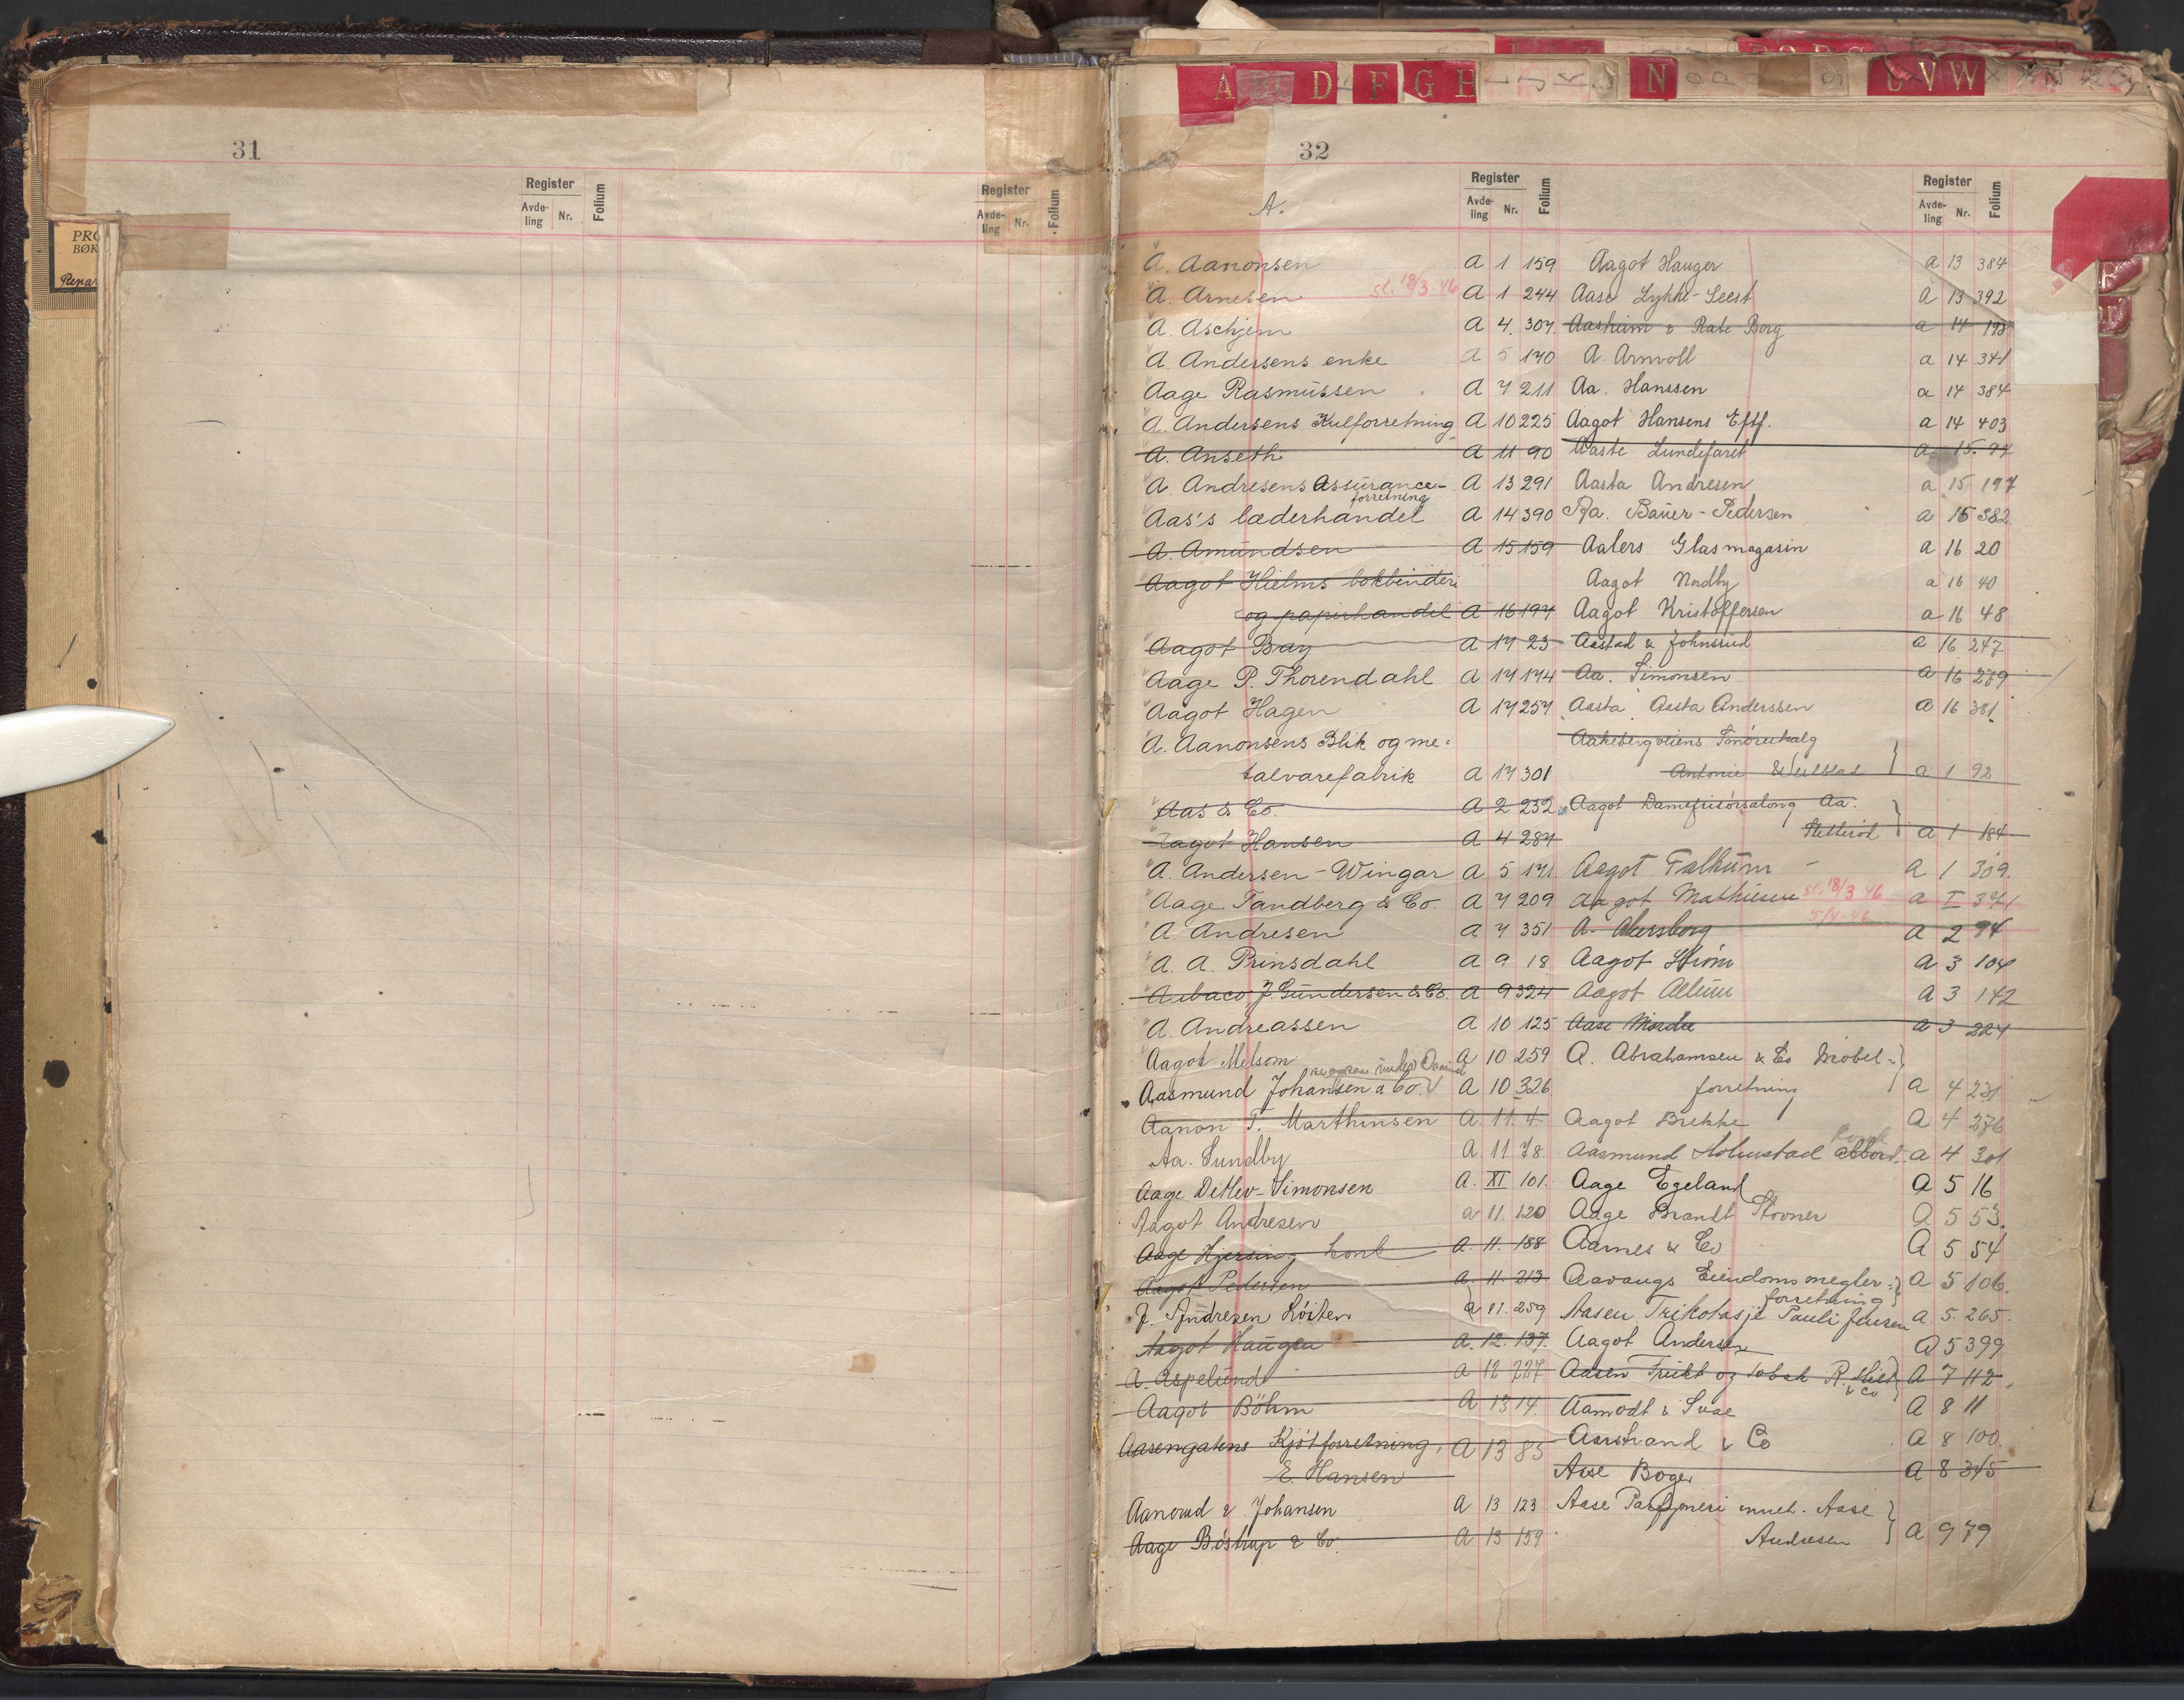 31
Register
Avde-
ling
Nr.
Folium
Register
Avde-
ling
Nr.
Folium
PRO
BØK
A D F G H N U V W
32
A.
Register
Avde-
ling
Nr.
Folium
A. Aanonsen A 1 159
A. Arnesen sl. 18/3-46 A 1 244
A. Aschjem A 4. 307.
A. Andersens enke A 5 170
Aage Rasmussen A 7 211
A. Andersens Kulforretning A 10 225
A. Anseth A 11 90
A. Andresens Assurance- A 13 291
forretning
Aas's læderhandel A 14 390
A. Amundsen A 15 159
Aagot Hielms bokbinderi
og papirhandel A 16 197
Aagot Bay A 17 23
Aage P. Thorendahl A 17 174
Aagot Hagen A 17 257
A. Aanonsens Blik og me-
talvarefabrik A 17 301
Aas & Co. A 2 232
Aagot Hansen A 4 287
A. Andersen-Wingar A 5 171
Aage Tandberg & Co. A 7 209
A. Andresen A 7 351
A. A. Prinsdahl A 9 18
J. Gundersen & Co. A 9 324
A. Andreassen A 10 125
Aagot Melsom A 10 259
Aasmund Johansen & Co. A 10 326
Aanon T. Marthinsen A. 11. 4.
Aa. Sundby A. 11. 78.
Aage Ditlev-Simonsen A. XI 101.
Aagot Andresen a 11. 120
Aage Hjersing A. 11. 188
Aagot Pedersen a. 11. 213
J. Andresen Løiten a 11. 259
Aagot Haugen A. 12. 137.
A. Aspelund a 12 227
Aagot Böhm A 13 14
Aasengatens Kjøtforretning, A 13 85
E. Hansen
Aanerud & Johansen A 13 123
Aage Bostrup & Co. A 13 159
Register
Avde-
ling
Nr.
Folium
Aagot Hauger A 13 384
Aase Lykke-Seest A 13 392
Aasheim & Rate Borg a 14 193
A. Arnvoll a 14 341
Aa. Hanssen a 14 384
Aagot Hansens Eftf. a 14 403
Aaste Lundefaret a. 15. 97
Aasta Andresen a 15 197
Ra. Bauer-Pedersen a 15 382.
Aalers Glasmagasin a 16 20
Aagot Nordby a 16 40
Aagot Kristoffersen a 16 48
Aastad & Johnsrud a 16 247
Aa. Simonsen a 16 279
Aasta Aasta Anderssen a 16 381
Aakebergveiens Smørutsalg
Antonie a 1 92
Aagot Damefrisørsalong Aa.
a 1 184
Aagot Falkum A 1 309.
Aagot Mathiesen sl. 18/3 46 a I 371
A. Akersborg a 2 94
Aagot Strøm A 3 104
Aagot Allum A 3 142
Aase a 3 224
A. Abrahamsen & Co Møbel-
forretning A 4 231
Aagot Brekke A 4 276
Aasmund Holmstad A 4 301
Aage Egeland A 5 16
Aage Brandt Stovner A 5 53.
Aarnes & Co A 5 54
Aavangs Eiendomsmegler- A 5 106.
forretning
Aasen Trikotasje Pauli Jensen A. 5. 265.
Aagot Andersen A 5 399
Aasen Frukt og Tobak R. A 7 112.
& Co
Aamodt & Svae A 8 11
Aarstrand & Co A 8 100.
Aase Boger A 8 345
Aase Parfymeri inneh. Aase
Andresen A 9 79